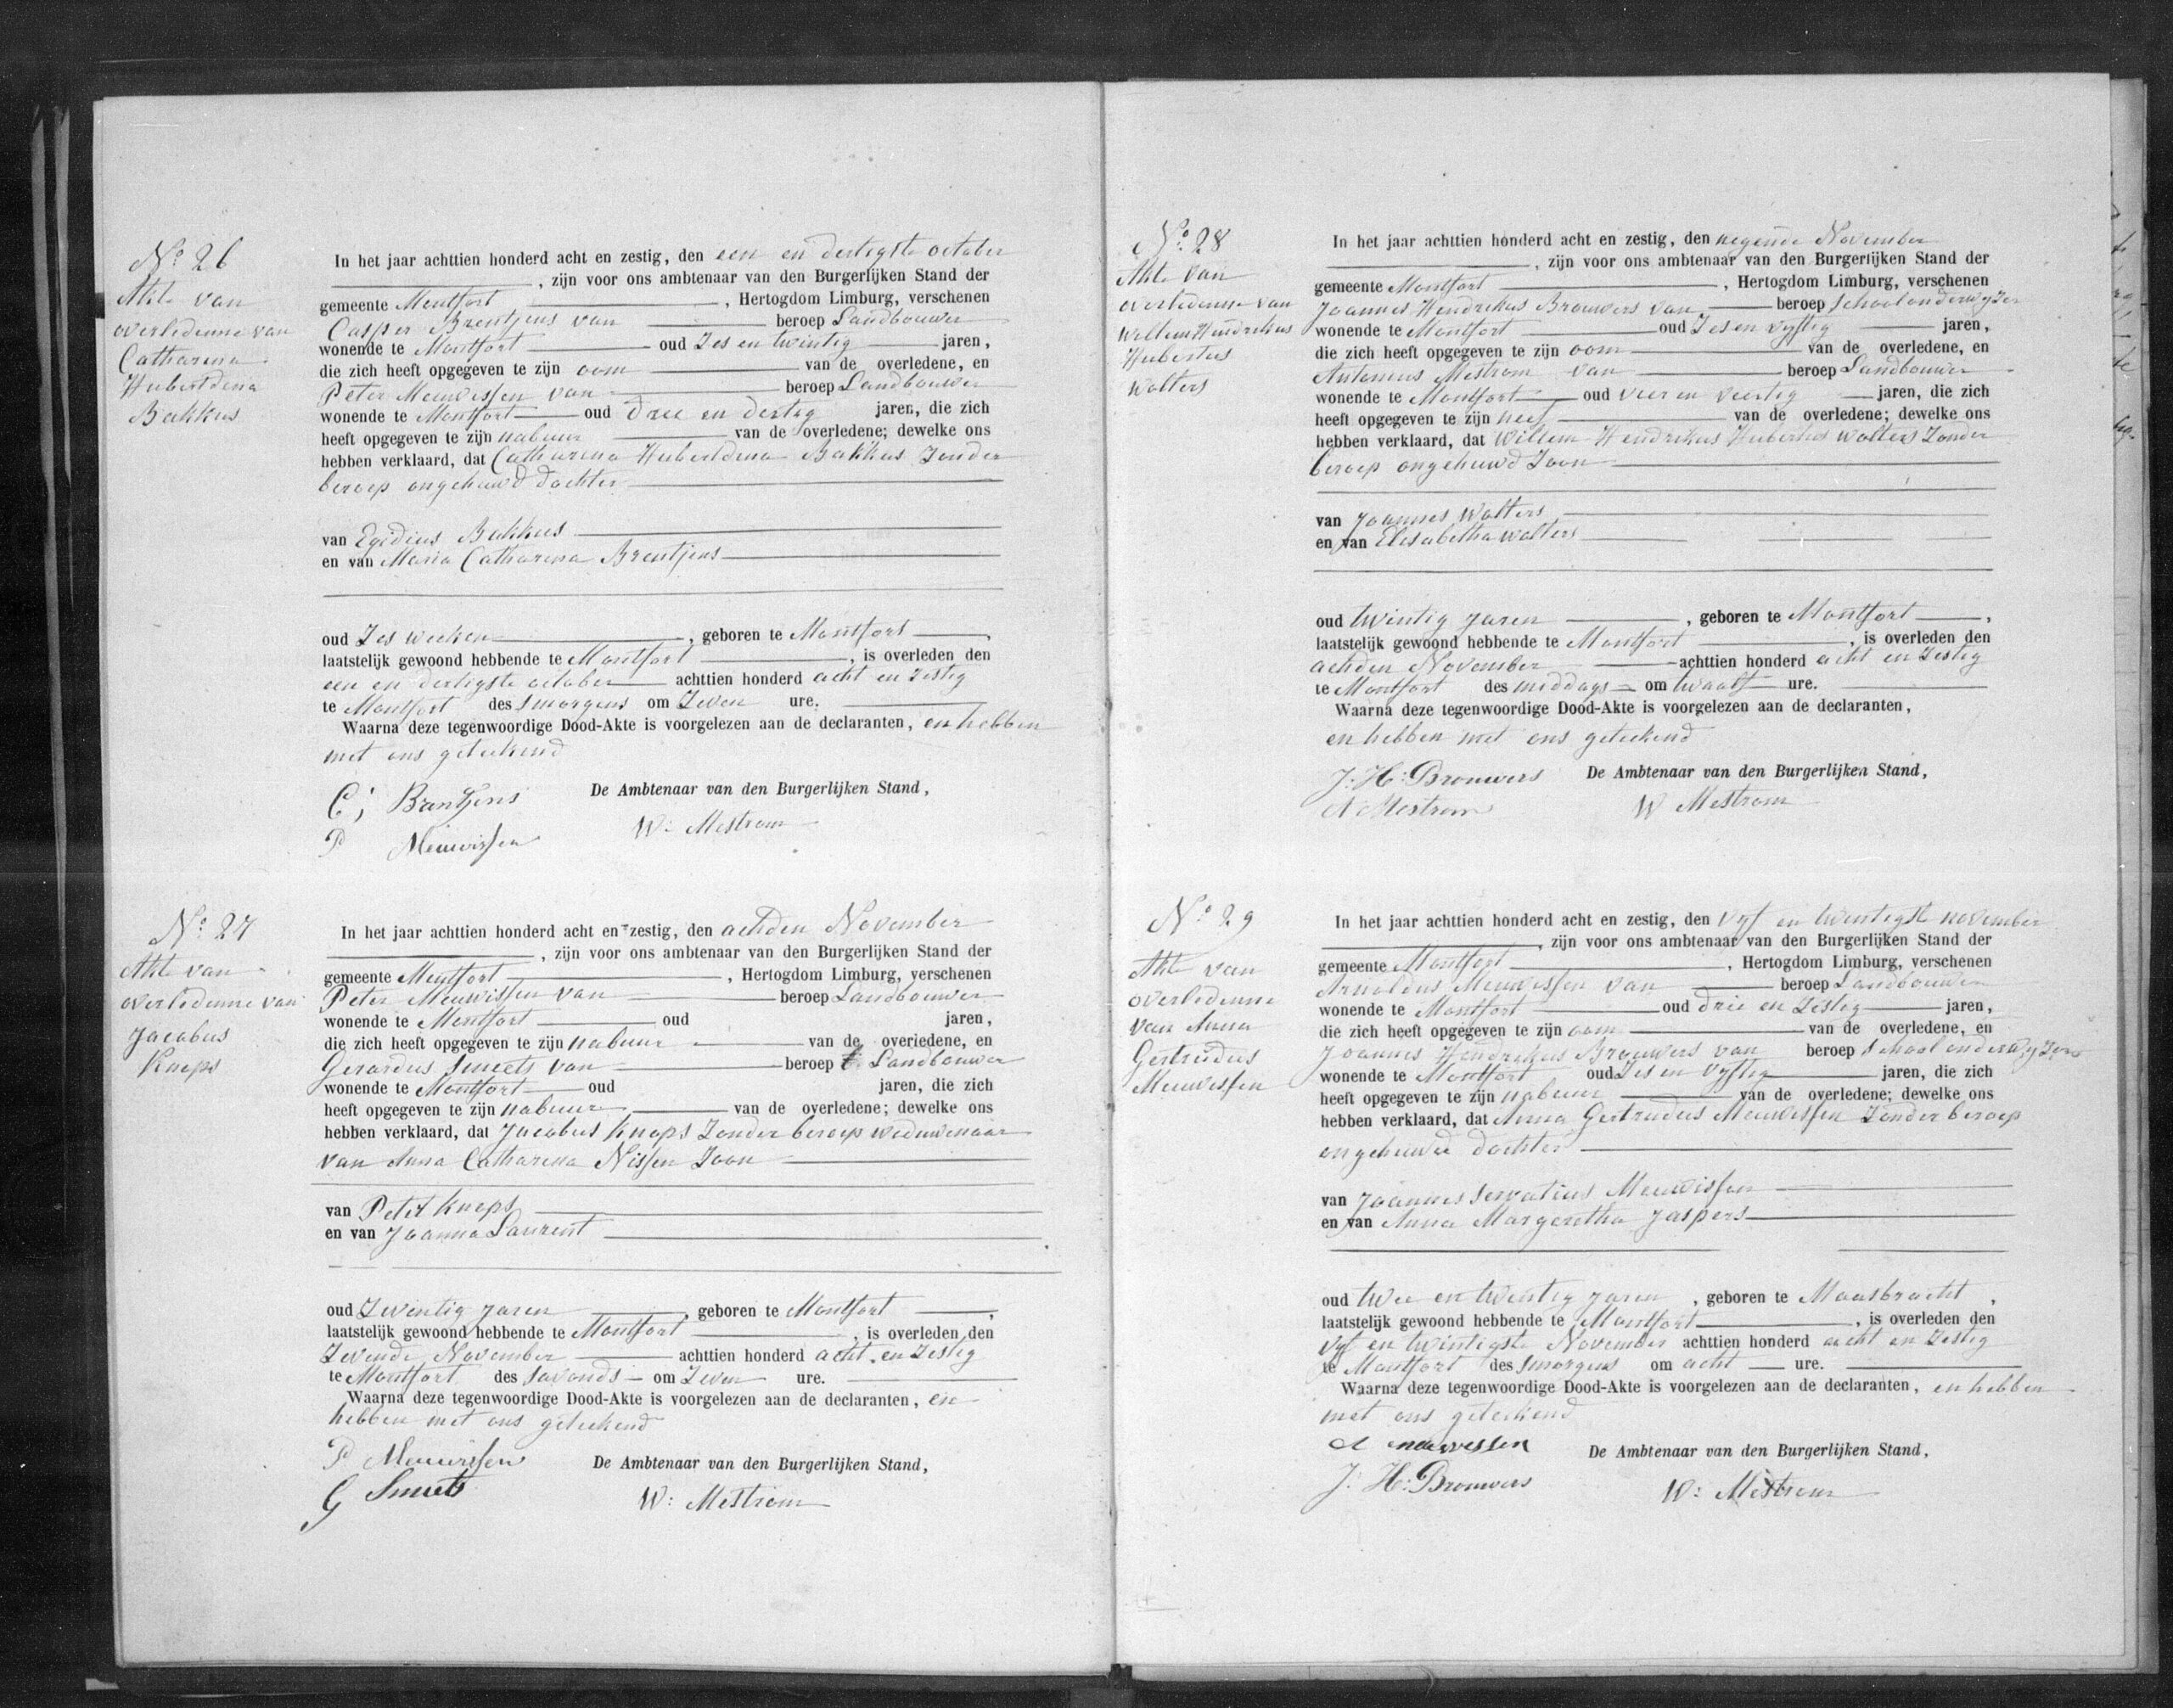 No. 26
Akte van
overledenne van
Catharina
Hubertdina
Bakkus
In het jaar achttien honderd acht en zestig, den een en dertigste october
, zijn voor ons ambtenaar van den Burgerlijken Stand der
gemeente Montfort , Hertogdom Limburg, verschenen
Casper Brentjens van beroep Landbouwer
wonende te Montfort oud Zes en twintig jaren,
die zich heeft opgegeven te zijn oom van de overledene, en
Peter Meuwissen van beroep Landbouwer
wonende te Montfort oud drie en dertig jaren, die zich
heeft opgegeven te zijn nabuur van de overledene; dewelke ons
hebben verklaard, dat Catharina Hubertdina Bakkus Zonder
beroep ongehuwd dochter
van Egidius Bakkus
en van Maria Catharina Brentjens
oud Zes weeken , geboren te Montfort ,
laatstelijk gewoond hebbende te Montfort , is overleden den
een en dertigste october achttien honderd acht en Zestig
te Montfort des smorgens om Zeven ure.
Waarna deze tegenwoordige Dood-Akte is voorgelezen aan de declaranten, en hebben
met ons geteekend
De Ambtenaar van den Burgerlijken Stand,
C; Brantjens
W: Mestrom
P Meuwissen
No. 27
Akte van
overledenne van
Jacobus
Knops
In het jaar achttien honderd acht en zestig, den achden November
, zijn voor ons ambtenaar van den Burgerlijken Stand der
gemeente Montfort , Hertogdom Limburg, verschenen
Peter Meuwissen van beroep Landbouwer
wonende te Montfort oud jaren,
die zich heeft opgegeven te zijn nabuur van de overledene, en
Gerardus Smeets van beroep Landbouwer
wonende te Montfort oud jaren, die zich
heeft opgegeven te zijn nabuur van de overledene; dewelke ons
hebben verklaard, dat Jacobus Knops Zonder beroep weduwenaar
van Anna Catharina Nissen Zoon
van Peter Knops
en van Joanna Laurent
oud Zeventig Jaren , geboren te Montfort ,
laatstelijk gewoond hebbende te Montfort , is overleden den
Zevende November achttien honderd acht en Zestig
te Montfort des savonds om Zeven ure.
Waarna deze tegenwoordige Dood-Akte is voorgelezen aan de declaranten, en
hebben met ons geteekend
P Meuwissen
De Ambtenaar van den Burgerlijken Stand,
G Smeets
W: Mestrom
No. 28
Akte van
overledenne van
Willem Hendrikus
Hubertus
Wolters
In het jaar achttien honderd acht en zestig, den negende November
, zijn voor ons ambtenaar van den Burgerlijken Stand der
gemeente Montfort , Hertogdom Limburg, verschenen
Joannes Hendrikus Brouwers van beroep Schoolonderwyzer
wonende te Montfort oud Zes en vyftig jaren,
die zich heeft opgegeven te zijn oom van de overledene, en
Antonius Mestrom van beroep Landbouwer
wonende te Montfort oud vier en veertig jaren, die zich
heeft opgegeven te zijn neef van de overledene; dewelke ons
hebben verklaard, dat Willem Hendrikus Hubertus Wolters Zonder
beroep ongehuwd Zoon
van Joannes Wolters
en van Elisabetha Wolters
oud twintig Jaren , geboren te Montfort ,
laatstelijk gewoond hebbende te Montfort , is overleden den
achden November achttien honderd acht en Zestig
te Montfort des middags om twaalf ure.
Waarna deze tegenwoordige Dood-Akte is voorgelezen aan de declaranten,
en hebben met ons geteekend
J: H: Brouwers
De Ambtenaar van den Burgerlijken Stand,
A Mestrom
W Mestrom
No. 29
Akte van
overledenne
van Anna
Gertrudus
Meuwissen
In het jaar achttien honderd acht en zestig, den vyf en twintigste november
, zijn voor ons ambtenaar van den Burgerlijken Stand der
gemeente Montfort , Hertogdom Limburg, verschenen
Arnoldus Meuwissen van beroep Landbouwer
wonende te Montfort oud drie en Zestig jaren,
die zich heeft opgegeven te zijn oom van de overledene, en
Joannes Hendrikus Brouwers van beroep Schoolonderwyzer
wonende te Montfort oud Zes en vyftig jaren, die zich
heeft opgegeven te zijn nabuur van de overledene; dewelke ons
hebben verklaard, dat Anna Gertrudus Meuwissen Zonder beroep
ongehuwd dochter
van Joannes Servatius Meuwissen
en van Anna Margeretha Jaspers
oud twee en twintig jaren , geboren te Maasbracht ,
laatstelijk gewoond hebbende te Montfort , is overleden den
vyf en twintigste November achttien honderd acht en Zestig
te Montfort des smorgens om acht ure.
Waarna deze tegenwoordige Dood-Akte is voorgelezen aan de declaranten, en hebben
met ons geteekend
A meuwessen
De Ambtenaar van den Burgerlijken Stand,
J: H: Brouwers
W: Mestrom